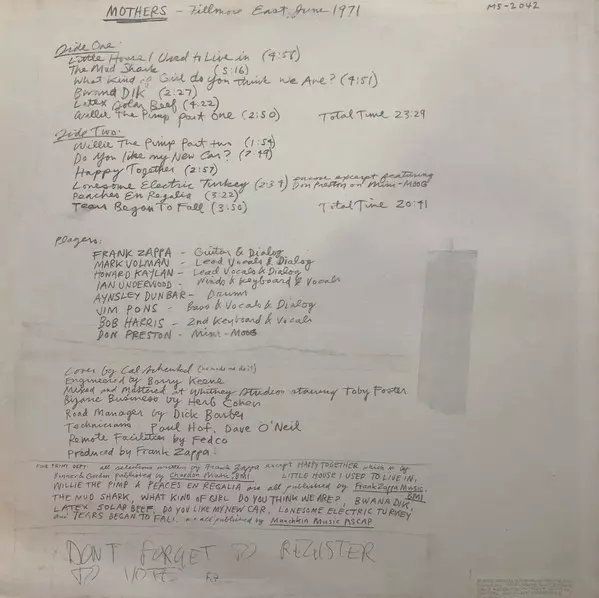 MOTHERS - Fillmore East, June 1971
MS-2042
Side One:
Little House I Used to Live in (4:58)
The Mud Shark (5:16)
What Kind of Girl do you think We Are? (4:51)
Bwana DIK (2:27)
Latex Solar Beef (4:22)
Willie The Pimp Part One (2:50) Total Time 23:29
Side Two:
Willie The Pimp Part two (1:54)
Do You like my New Car? (7:49)
Happy Together (2:57)
Lonesome Electric Turkey (2:34) encore excerpt featuring Don Preston on Mini-MOOG
Peaches En Regalia (3:22)
Tears Began To Fall (3:50) Total Time 20:41
Players:
FRANK ZAPPA - Guitar & Dialog
MARK VOLMAN - Lead Vocals & Dialog
HOWARD KAYLAN - Lead Vocals & Dialog
IAN UNDERWOOD - Winds & Keyboard & Vocals
AYNSLEY DUNBAR - Drums
JIM PONS - Bass & Vocals & Dialog
BOB HARRIS - 2nd Keyboard & Vocals
DON PRESTON - Mini-MOOG
Cover by Cal Schenkel
Engineered by Barry Keene
Mixed and Mastered at Whitney Studios starring Toby Foster
Bizarre Business by Herb Cohen
Road Manager by Dick Barber
Technicians: Paul Hof, Dave O'Neil
Remote Facilities by Fedco
Produced by Frank Zappa
FINE PRINT DEPT all selections written by Frank Zappa except HAPPY TOGETHER which is by
published by Chardon Music, BMI. LITTLE HOUSE I USED TO LIVE IN,
WILLIE THE PIMP & PEACES EN REGALIA are all published by Frank Zappa Music, BMI
THE MUD SHARK, WHAT KIND OF GIRL DO YOU THINK WE ARE?, BWANA DIK,
LATEX SOLAR BEEF, DO YOU LIKE MY NEW CAR, LONESOME ELECTRIC TURKEY
and TEARS BEGAN TO FALL are all published by Munchkin Music ASCAP
DON'T FORGET TO REGISTER
TO VOTE